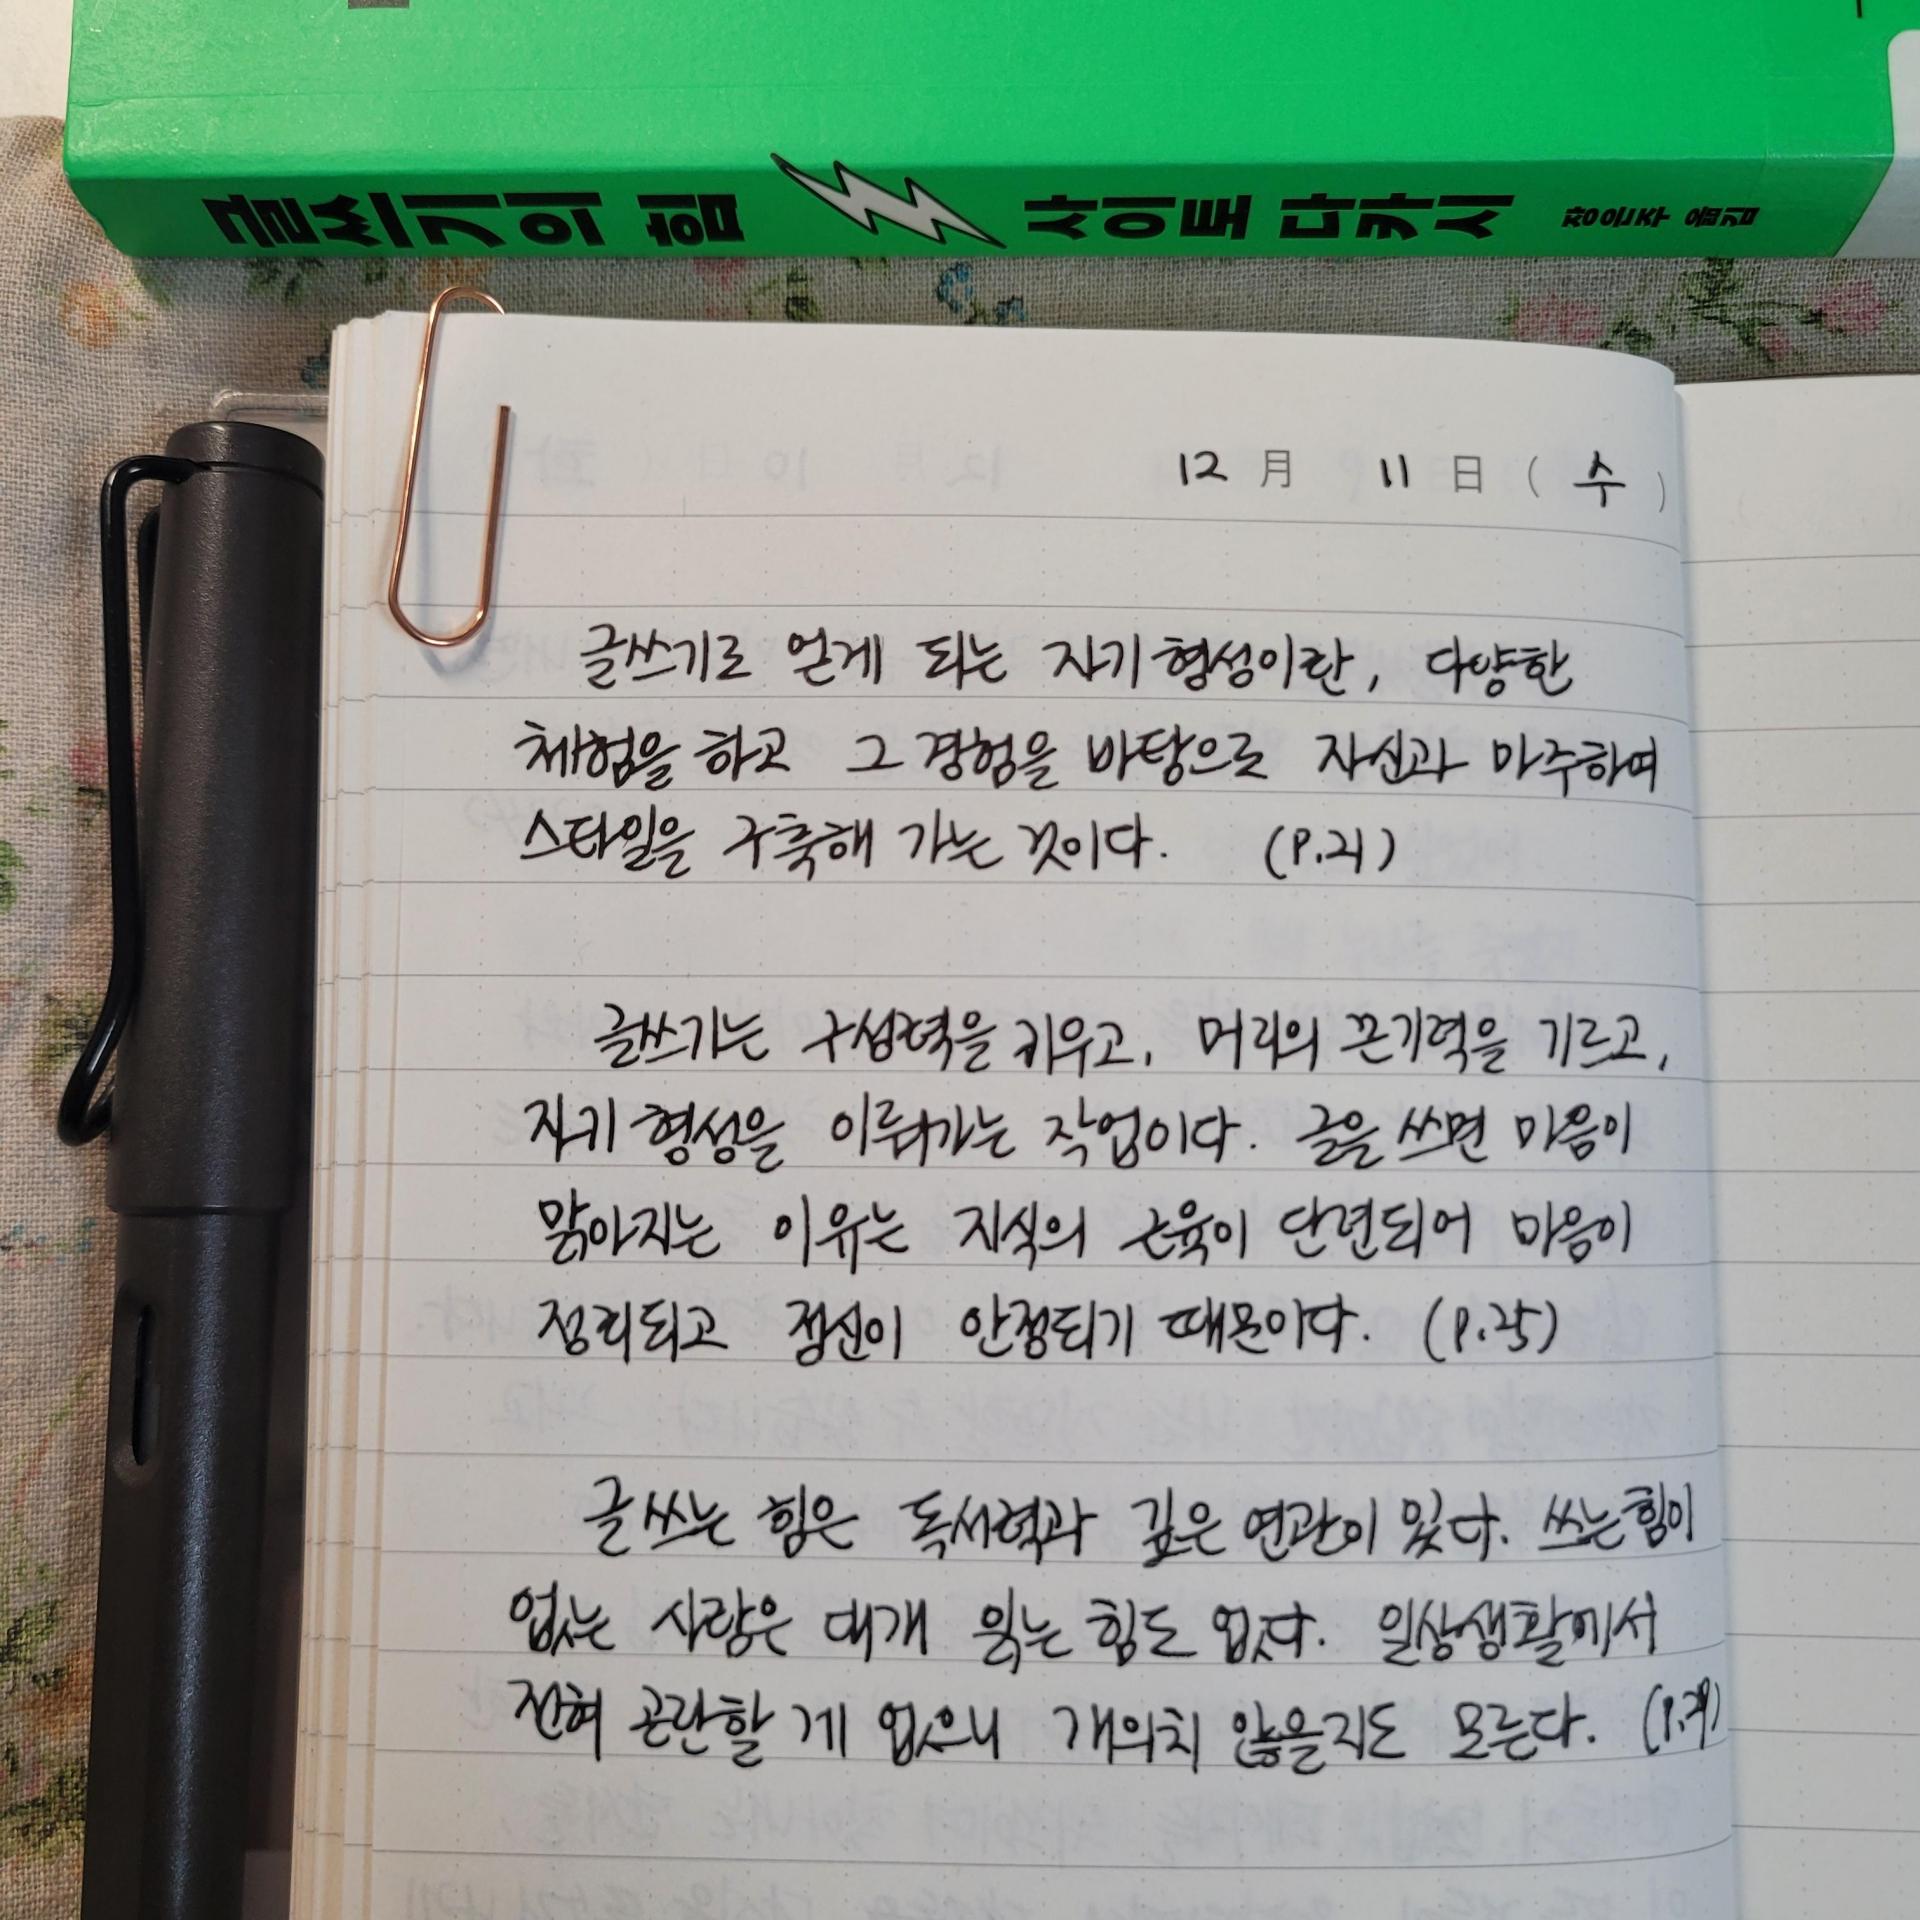 글쓰기의 힘 사이토 다카시 장은주 옮김
12 月 11 日 ( 수 )
글쓰기로 얻게 되는 자기 형성이란, 다양한
체험을 하고 그 경험을 바탕으로 자신과 마주하여
스타일을 구축해 가는 것이다. (P.21)
글쓰기는 구성력을 키우고, 머리의 끈기력을 기르고,
자기 형성을 이뤄가는 작업이다. 글을 쓰면 마음이
맑아지는 이유는 지식의 근육이 단련되어 마음이
정리되고 정신이 안정되기 때문이다. (P.25)
글 쓰는 힘은 독서력과 깊은 연관이 있다. 쓰는 힘이
없는 사람은 대개 읽는 힘도 없다. 일상생활에서
전혀 곤란할 게 없으니 개의치 않을지도 모른다.